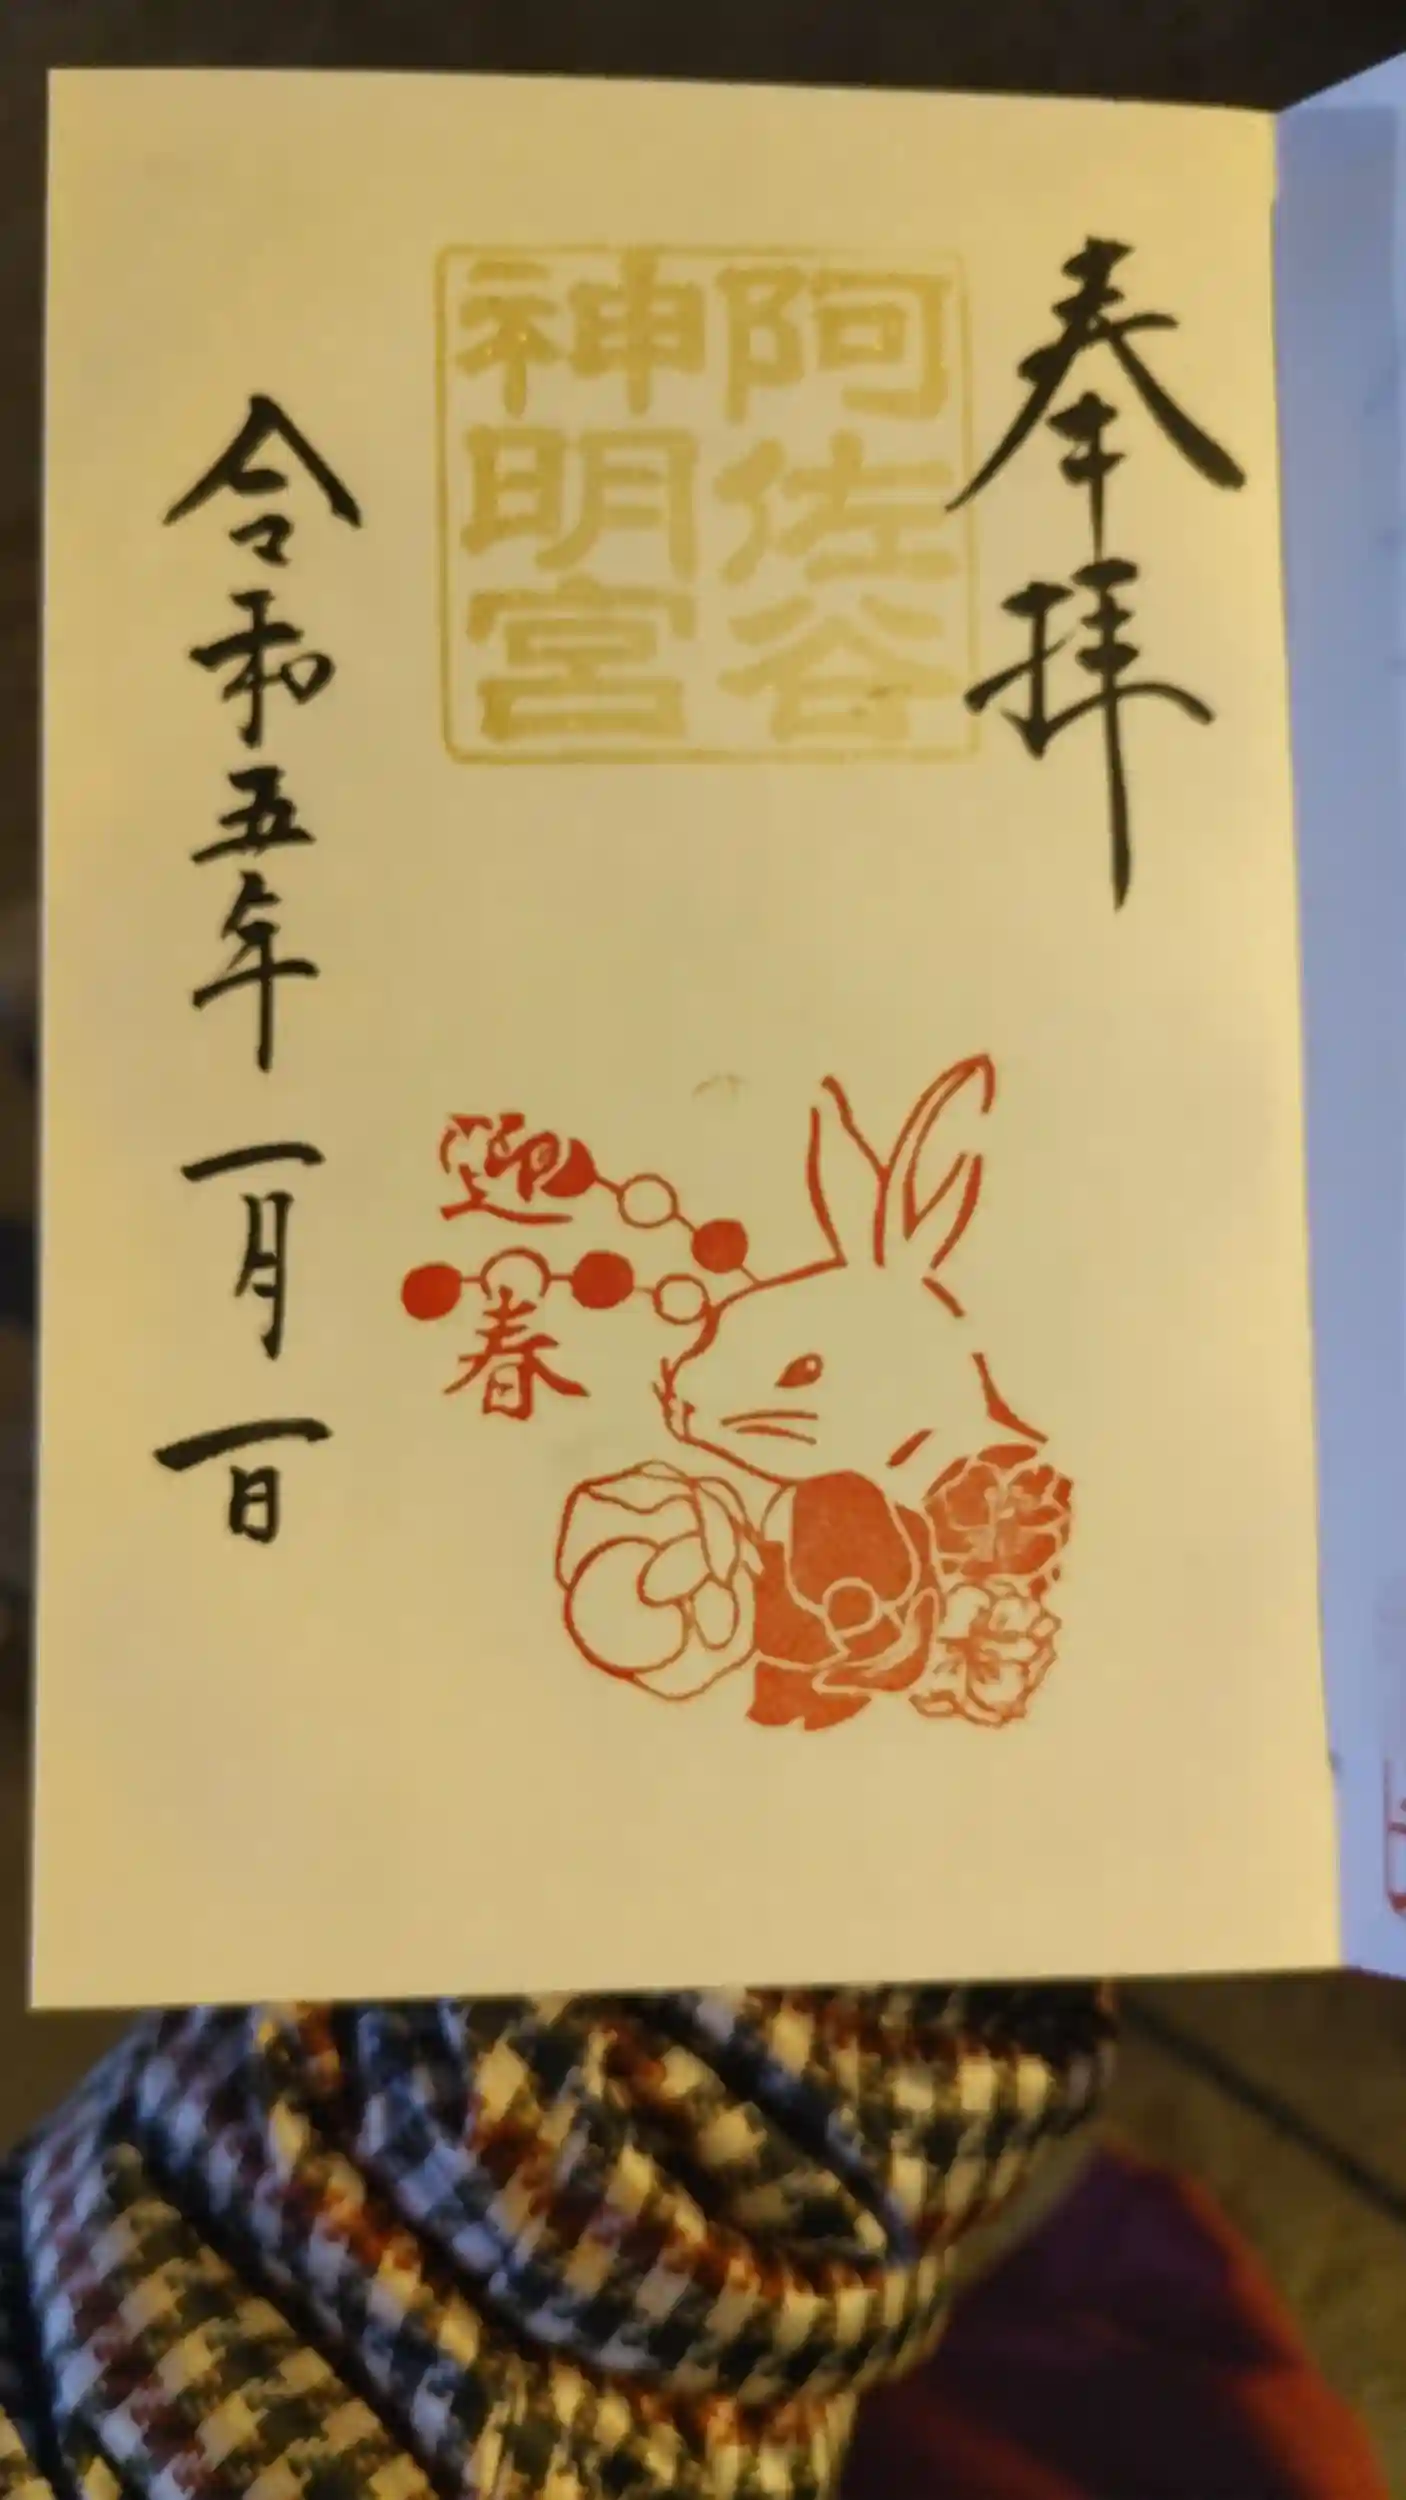 奉拝
阿佐谷
神明宮
迎
春
令和五年一月一日